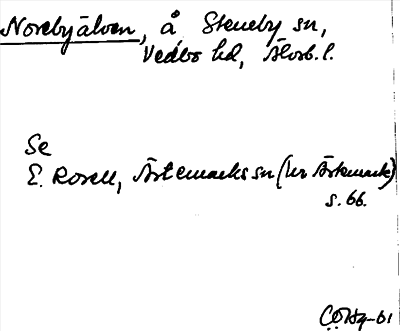 Norebyälven, å, Steneby sn,
Vedbo hd, Älvsb. l.
Se
E. Rosell, Ärtemarks sn (ur Ärtemark)
s. 66.